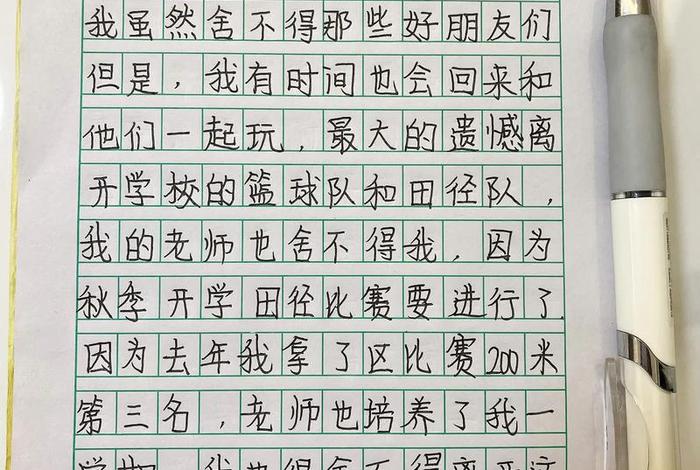 我虽然舍不得那些好朋友们
但是，我有时间也会回来和
他们一起玩，最大的遗憾离
开学校的篮球队和田径队，
我的老师也舍不得我，因为
秋季开学田径比赛要进行了
因为去年我拿了区比赛200米
第三名，老师也培养了我一